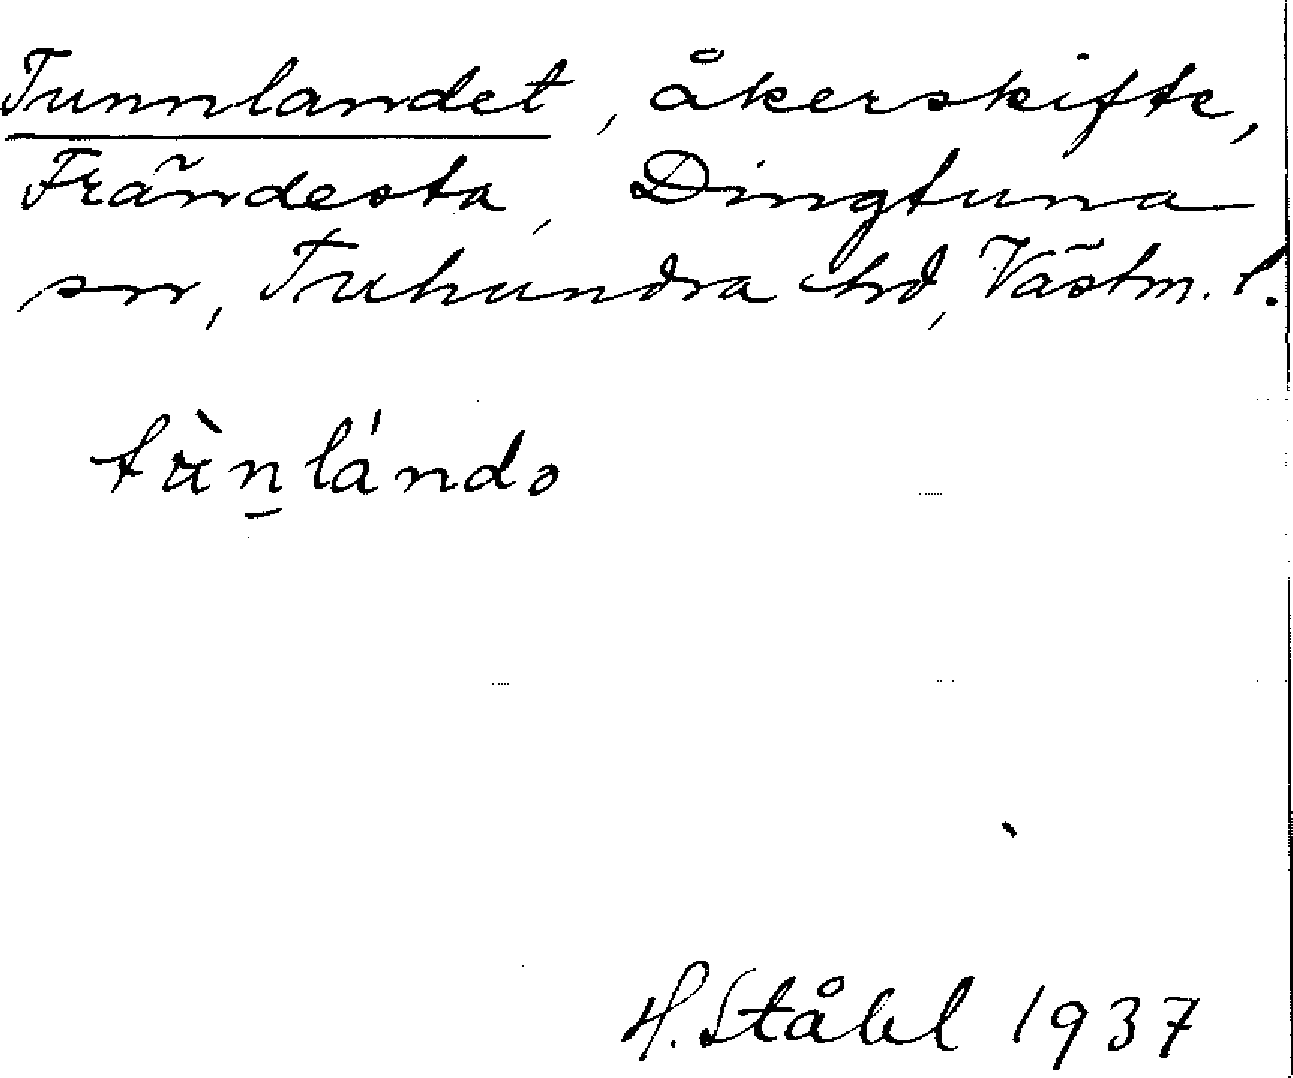 Tunnlandet, åkerskifte,
Frändesta, Dingtuna
sn, Tuhundra hd, Västm. l.
H. Ståhl 1937